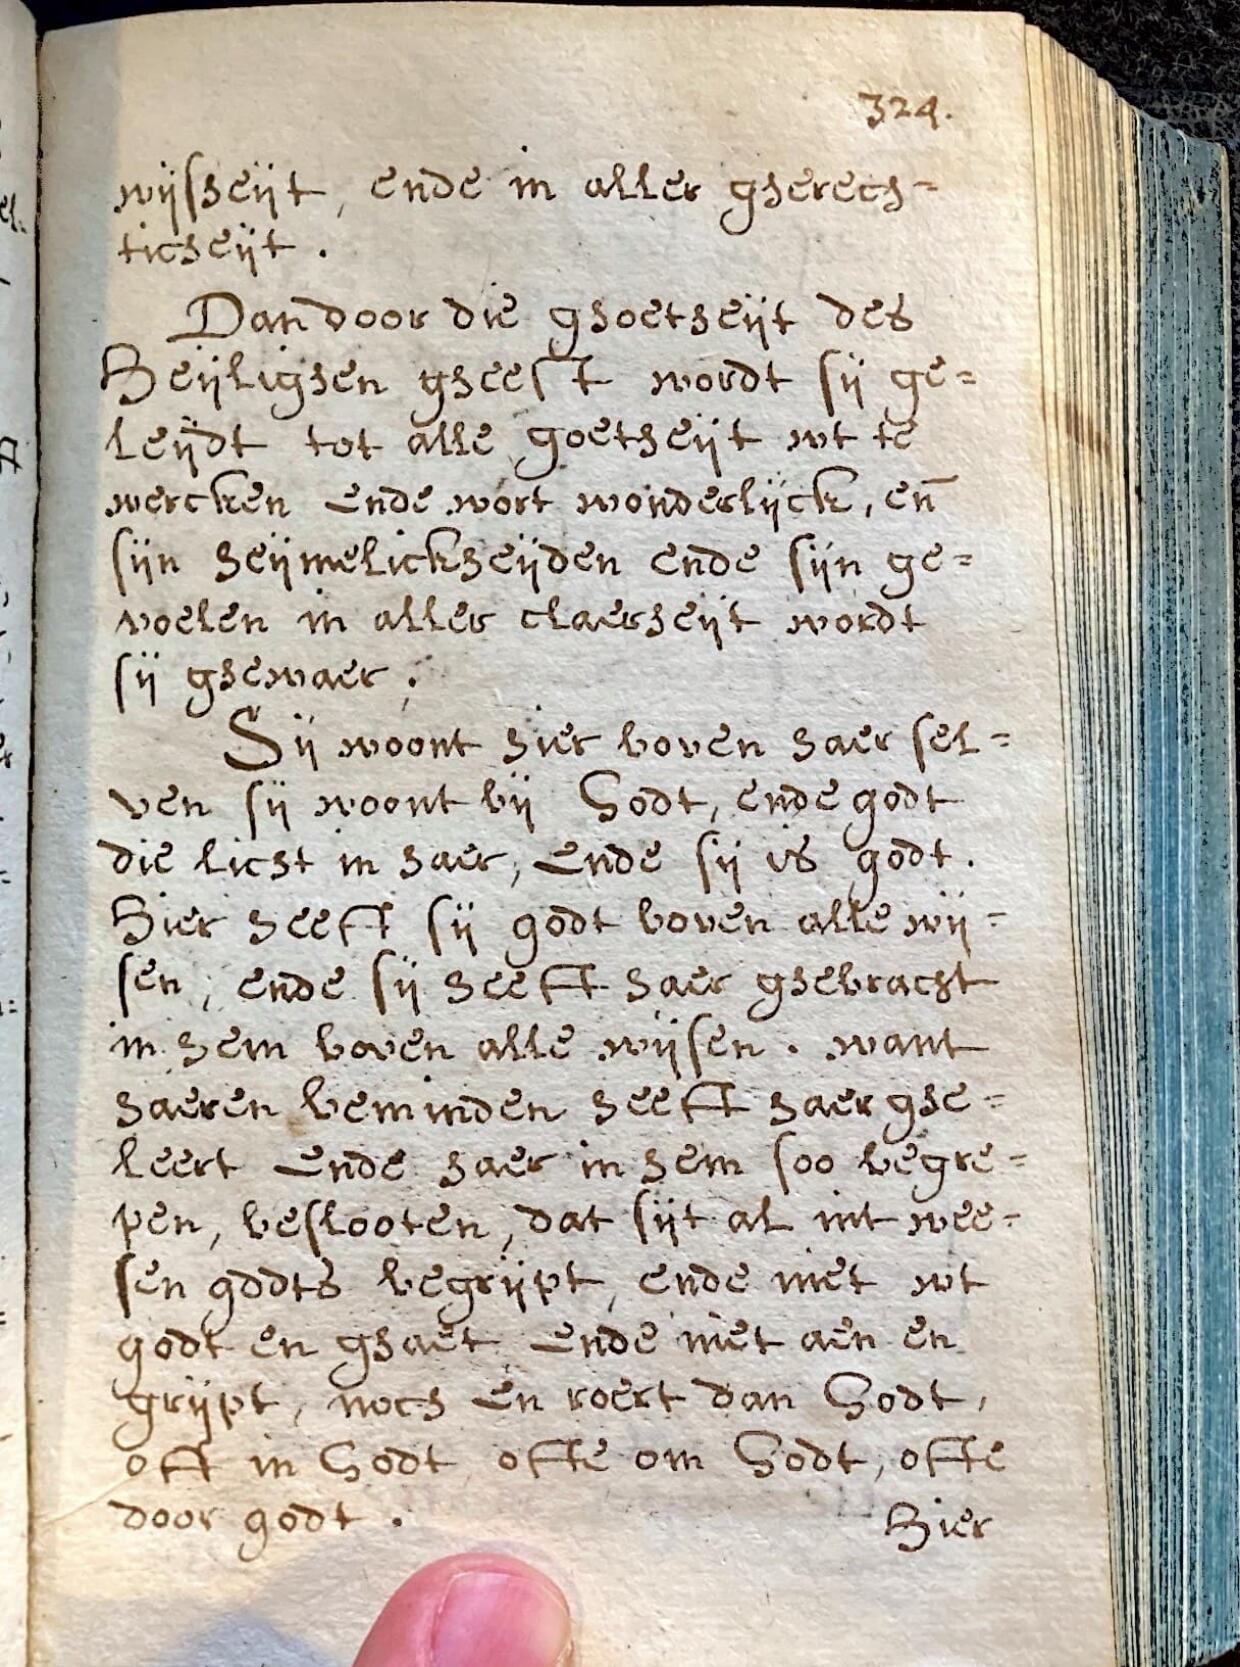 324.
wijsheijt, ende in aller gherech=
ticheijt.
Dan door die ghoetheijt des
Heijlighen gheest wordt sij ge=
leijdt tot alle goetheijt wt te
wercken ende wort wonderlijck, en̄
sijn heijmelickheijden ende sijn ge=
voelen in aller claerheijt wordt
sij ghewaer;
Sij woont hier boven haer sel=
ven sij woont bij Godt, ende godt
die licht in haer, ende sij is godt.
Hier heeft sij godt boven alle wij=
sen, ende sij heeft haer ghebracht
in hem boven alle wijsen. want
haeren beminden heeft haer ghe=
leert ende haer in hem soo begre=
pen, beslooten, dat sijt al int wee=
sen godts begrijpt, ende niet wt
godt en ghaet ende niet aen en
grijpt, noch en roert dan Godt,
oft in Godt ofte om Godt, ofte
door godt.
Hier